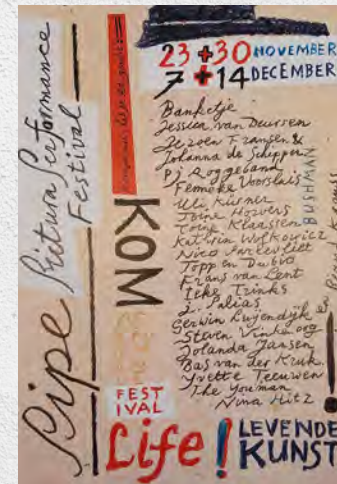 Pipe Return Performance
Festival
KOM
23 + 30 NOVEMBER
7 + 14 DECEMBER
Banketje
Jessica van Deursen
Jeroen Fransen &
Johanna de Schipper
Pj Roggeband
Femneke Voorsluijs
Uli Kürner
Joine Horvers
Toine Klaassen
Katrin Wolkowicz
Nico Parlevliet
Topp en Dubio
Frans van Lent
Ieke Trinks
J. Salias
Gerwin Luijendijk
Steven Vinkenoog
Jolanda Jansen
Bas van der Kruk
Yvette Teeuwen
The Youman
Nina Hitz
BUSHMAN
FEST
IVAL
Life!
LEVENDE
KUNST